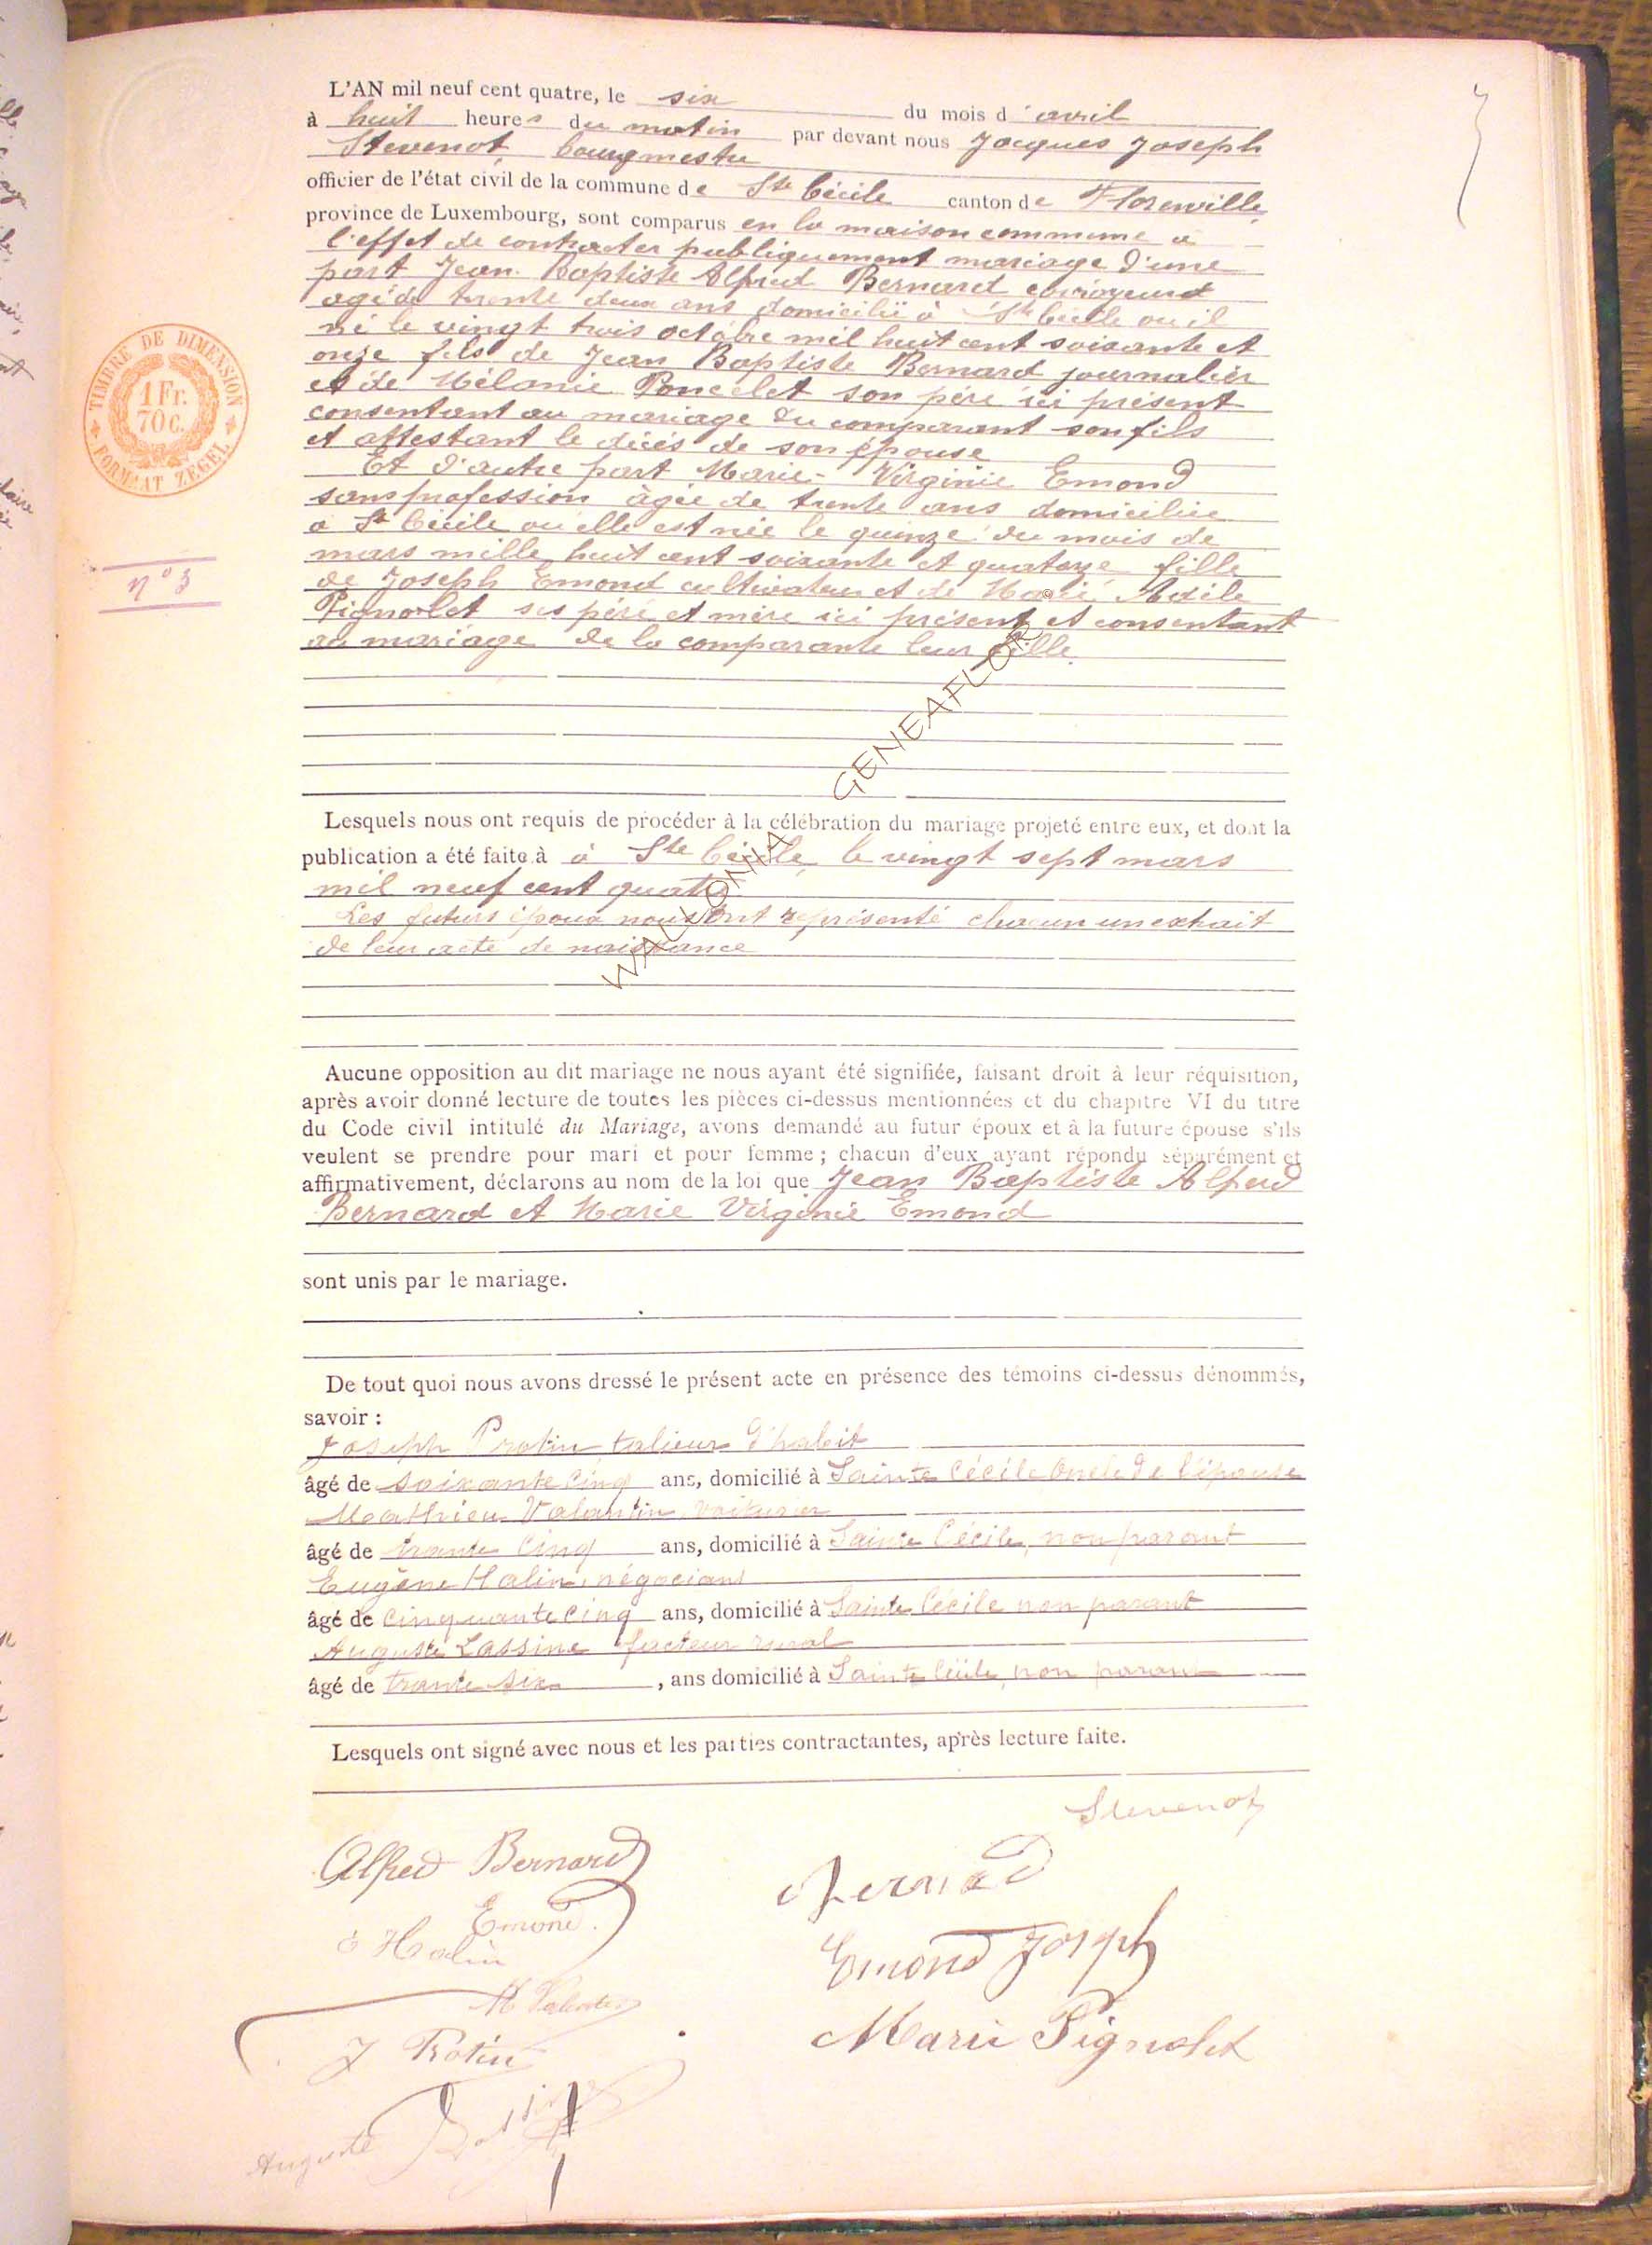 L'AN mil neuf cent quatre, le six du mois d'avril
à huit heures du matin par devant nous Jacques Joseph
Stevenot, bourgmestre
officier de l'état civil de la commune de Ste Cécile canton de Florenville
province de Luxembourg, sont comparus en la maison commune a
l'effet de contracter publiquement mariage d'une
part Jean Baptiste Alfred Bernard
agé de trente deux ans domicilié à Ste Cécile ou il
né le vingt trois octobre mil huit cent soixante et
onze fils de Jean Baptiste Bernard journalier
et de Mélanie Poncelet son père ici présent
consentant au mariage du comparant son fils
et attestant le décès de son épouse
Et d'autre part Marie-Virginie Emond
sans profession âgée de trente ans domiciliée
à Ste Cécile où elle est née le quinze du mois de
mars mille huit cent soixante et quatorze fille
de Joseph Emond cultivateur et de Marie Adèle
Pignolet ses père et mère ici présent et consentant
au mariage de la comparante leur fille.
TIMBRE DE DIMENSION
1 Fr.
70 C.
FORMAAT ZEGEL
n° 3
Lesquels nous ont requis de procéder à la célébration du mariage projeté entre eux, et dont la
publication a été faite à à Ste Cécile, le vingt sept mars
mil neuf cent quatre
Les futurs époux nous ont représenté chacun un extrait
de leur acte de naissance
WALLONIA GENEAFLOR
Aucune opposition au dit mariage ne nous ayant été signifiée, faisant droit à leur réquisition,
après avoir donné lecture de toutes les pièces ci-dessus mentionnées et du chapitre VI du titre
du Code civil intitulé du Mariage, avons demandé au futur époux et à la future épouse s'ils
veulent se prendre pour mari et pour femme ; chacun d'eux ayant répondu séparément et
affirmativement, déclarons au nom de la loi que Jean Baptiste Alfred
Bernard et Marie Virginie Emond
sont unis par le mariage.
De tout quoi nous avons dressé le présent acte en présence des témoins ci-dessus dénommés,
savoir :
Joseph Protin talieur d'habit
âgé de soixante cinq ans, domicilié à Sainte Cécile Oncle de l'épouse
Mathieu Valentin voiturier
âgé de trante cinq ans, domicilié à Sainte Cécile, non parant
Eugène Halin, négociant
âgé de cinquante cinq ans, domicilié à Sainte Cécile non parant
Auguste Lassine facteur rural
âgé de trante six , ans domicilié à Sainte Cécile, non parant
Lesquels ont signé avec nous et les parties contractantes, après lecture faite.
Stevenot
Alfred Bernard
Bernard
Emond
E Halin
Emond Joseph
M Valentin
J Protin
Marie Pignolet
Auguste Lassine